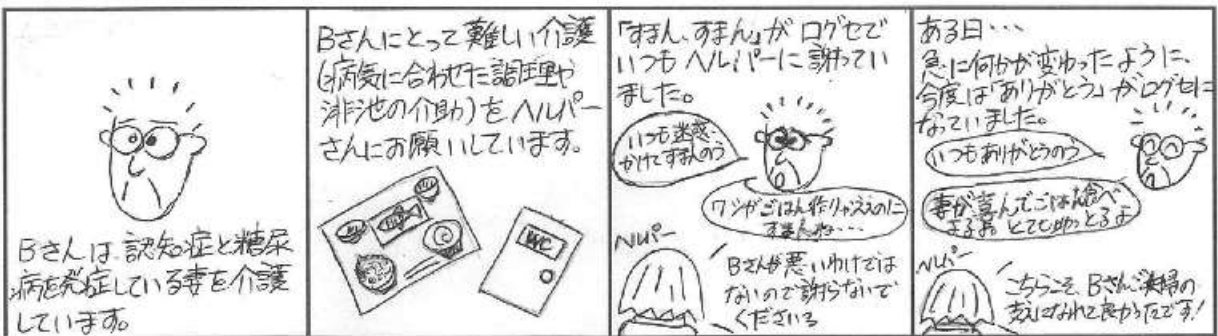 Bさんは、認知症と糖尿
病を発症している妻を介護
しています。
Bさんにとって難しい介護
(病気に合わせた調理や
排泄の介助)をヘルパー
さんにお願いしています。
WC
「すまん、すまん」が口グセで
いつもヘルパーに謝ってい
ました。
いつも迷惑
かけてすまんのう
ワシがごはん作りゃええのに
すまんね・・・
ヘルパー
Bさんが悪いわけでは
ないので謝らないで
くださいる
ある日・・・
急に何かが変わったように、
今度は「ありがとう」が口グセに
なっていました。
いつもありがとうのう
妻が喜んでごはん食べ
よるお。とても助っとるよ
ヘルパー
こちらこそ、Bさんご夫婦の
支えになれて良かったです!